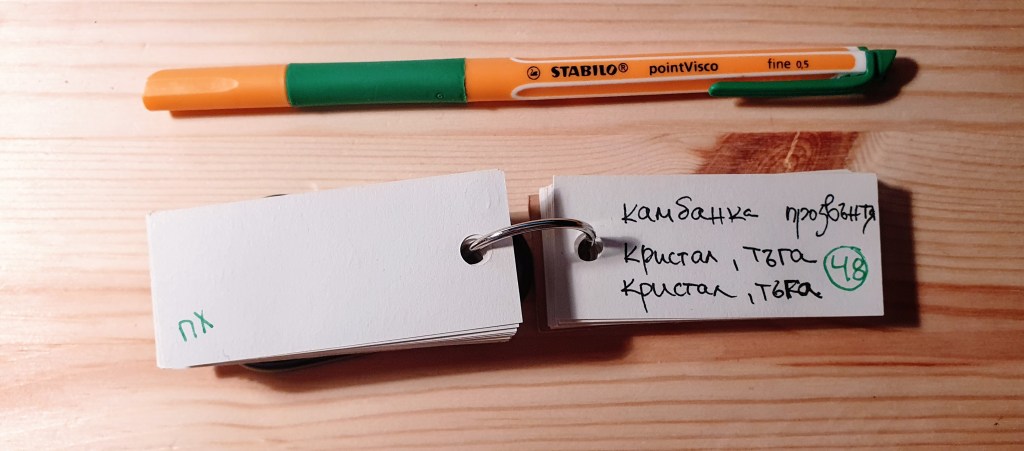 STABILO® pointVisco fine 0,5
камбанка прозвънтя
кристал, тъга
кристал, тъка.
48
ПХ